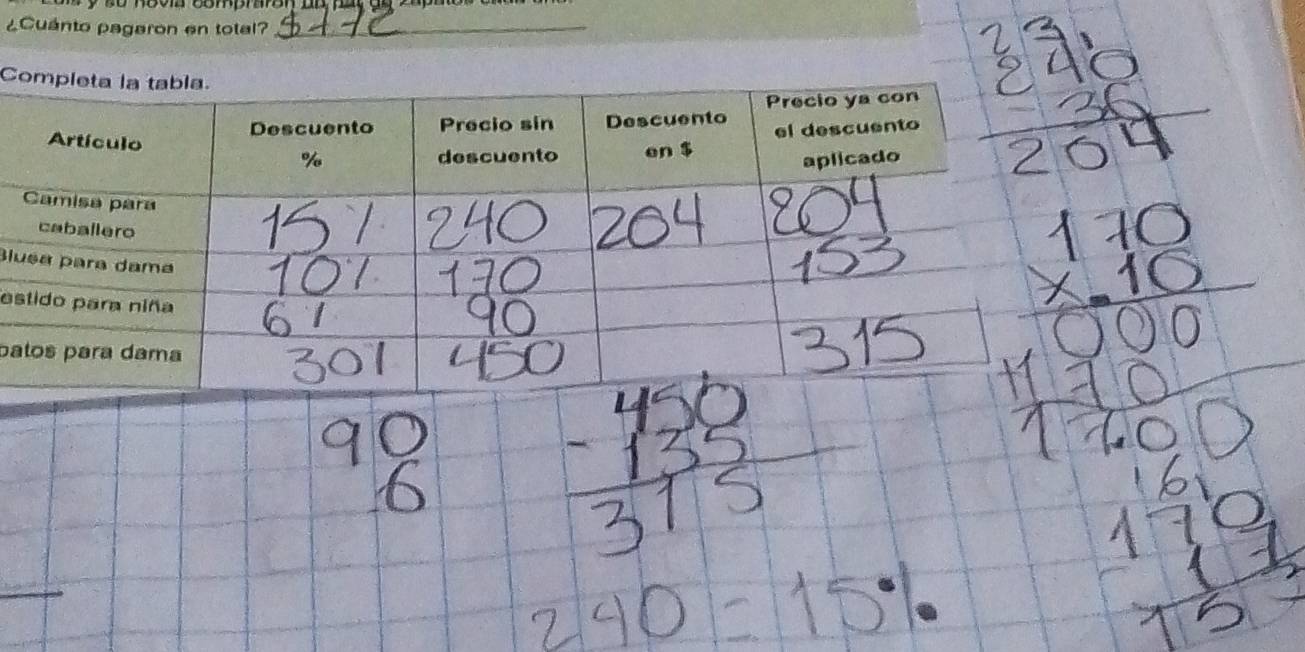 y su novia compraron un par de zapatos cada uno
¿Cuánto pagaron en total? $
Completa la tabla.
Artículo Descuento % Precio sin descuento Descuento en $ Precio ya con el descuento aplicado
Camisa para caballero 15% 240 204 204
Blusa para dama 10% 170 153
estido para niña 6% 90
patos para dama 30% 450 315
240
- 36
204
170
x .10
000
+170
17.00
16
170
- 17
153
90
6
450
- 135
315
240 - 15%